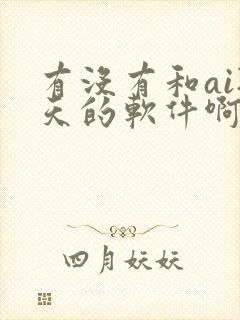 有沒有和ai
天的軟件啊
四月妖妖